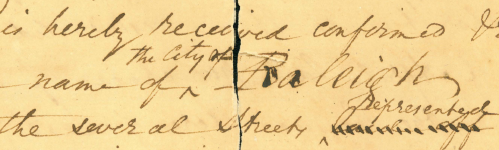 is hereby received confirmed &
the City of
name of ^ Raleigh
represented
the several Streets ^